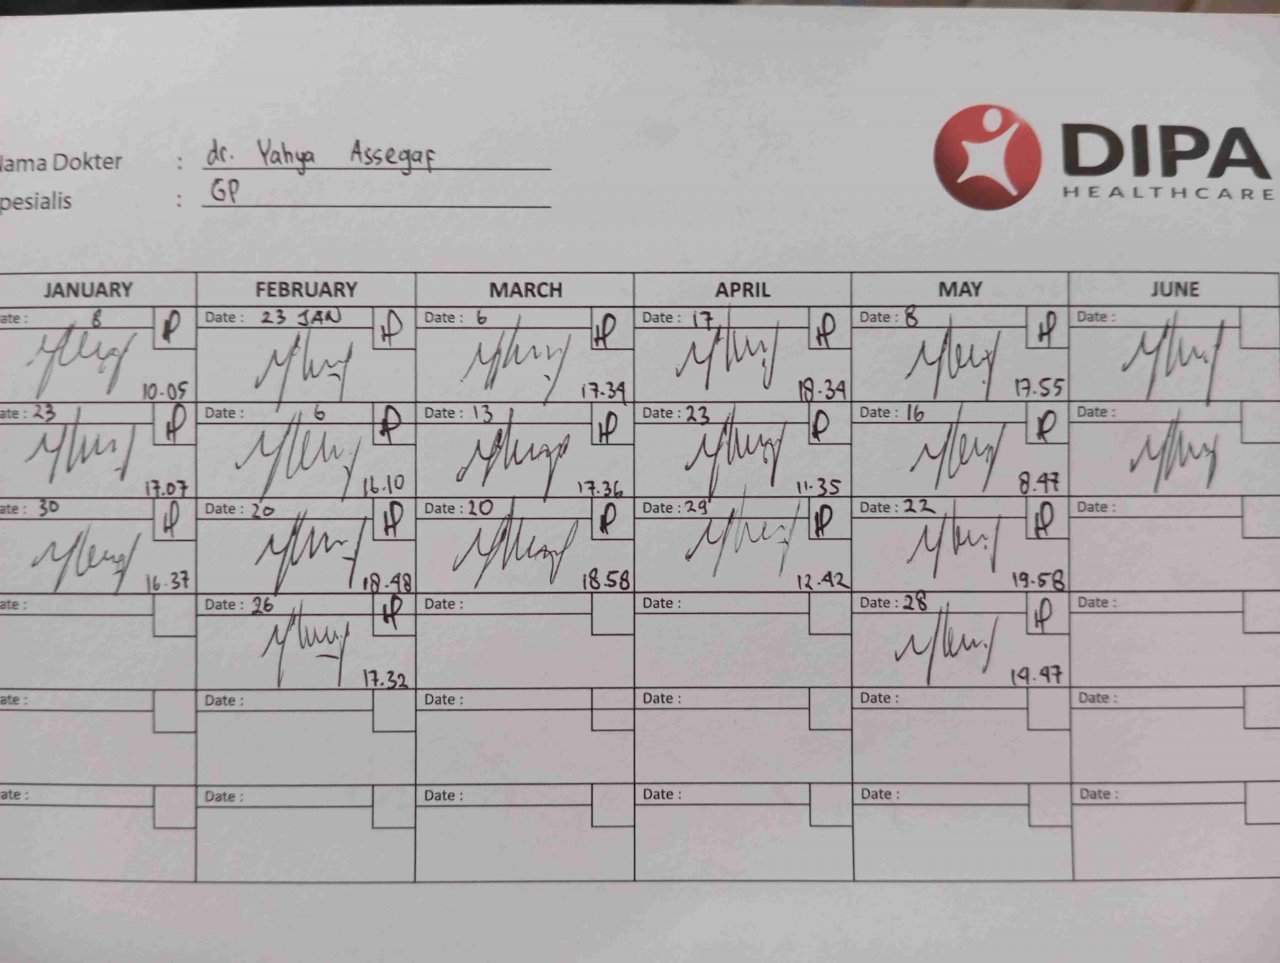 DIPA
HEALTHCARE
Nama Dokter : dr. Yahya Assegaf
pesialis : GP
JANUARY FEBRUARY MARCH APRIL MAY JUNE
ate : 8 Date : 23 JAN Date : 6 Date : 17 Date : 8 Date :
10.05 17.34 18.34 17.55
ate : 23 Date : 6 Date : 13 Date : 23 Date : 16 Date :
17.07 16.10 17.36 11.35 8.47
ate : 30 Date : 20 Date : 20 Date : 29 Date : 22 Date :
16.37 18.48 18.58 12.42 19.58
ate : Date : 26 Date : Date : Date : 28 Date :
17.32 19.47
ate : Date : Date : Date : Date : Date :
ate : Date : Date : Date : Date : Date :